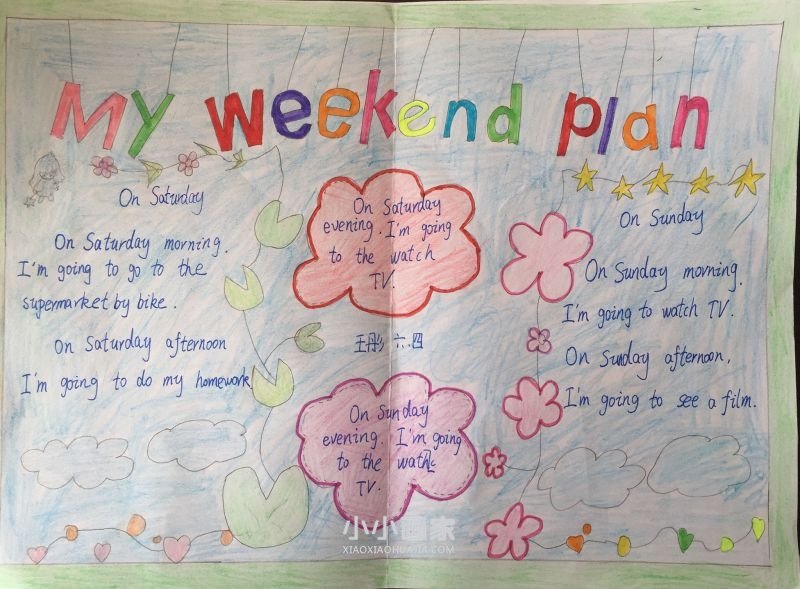 My weekend plan
On Saturday
On Saturday morning.
I'm going to go to the
supermarket by bike.
On Saturday afternoon
I'm going to do my homework
On Saturday
evening. I'm going
to the watch
TV.
王彤 六.四
On Sunday
evening. I'm going
to the watch
TV.
On Sunday
On Sunday morning.
I'm going to watch TV.
On Sunday afternoon,
I'm going to see a film.
小小画家
XIAOXIAOHUAJIA.COM